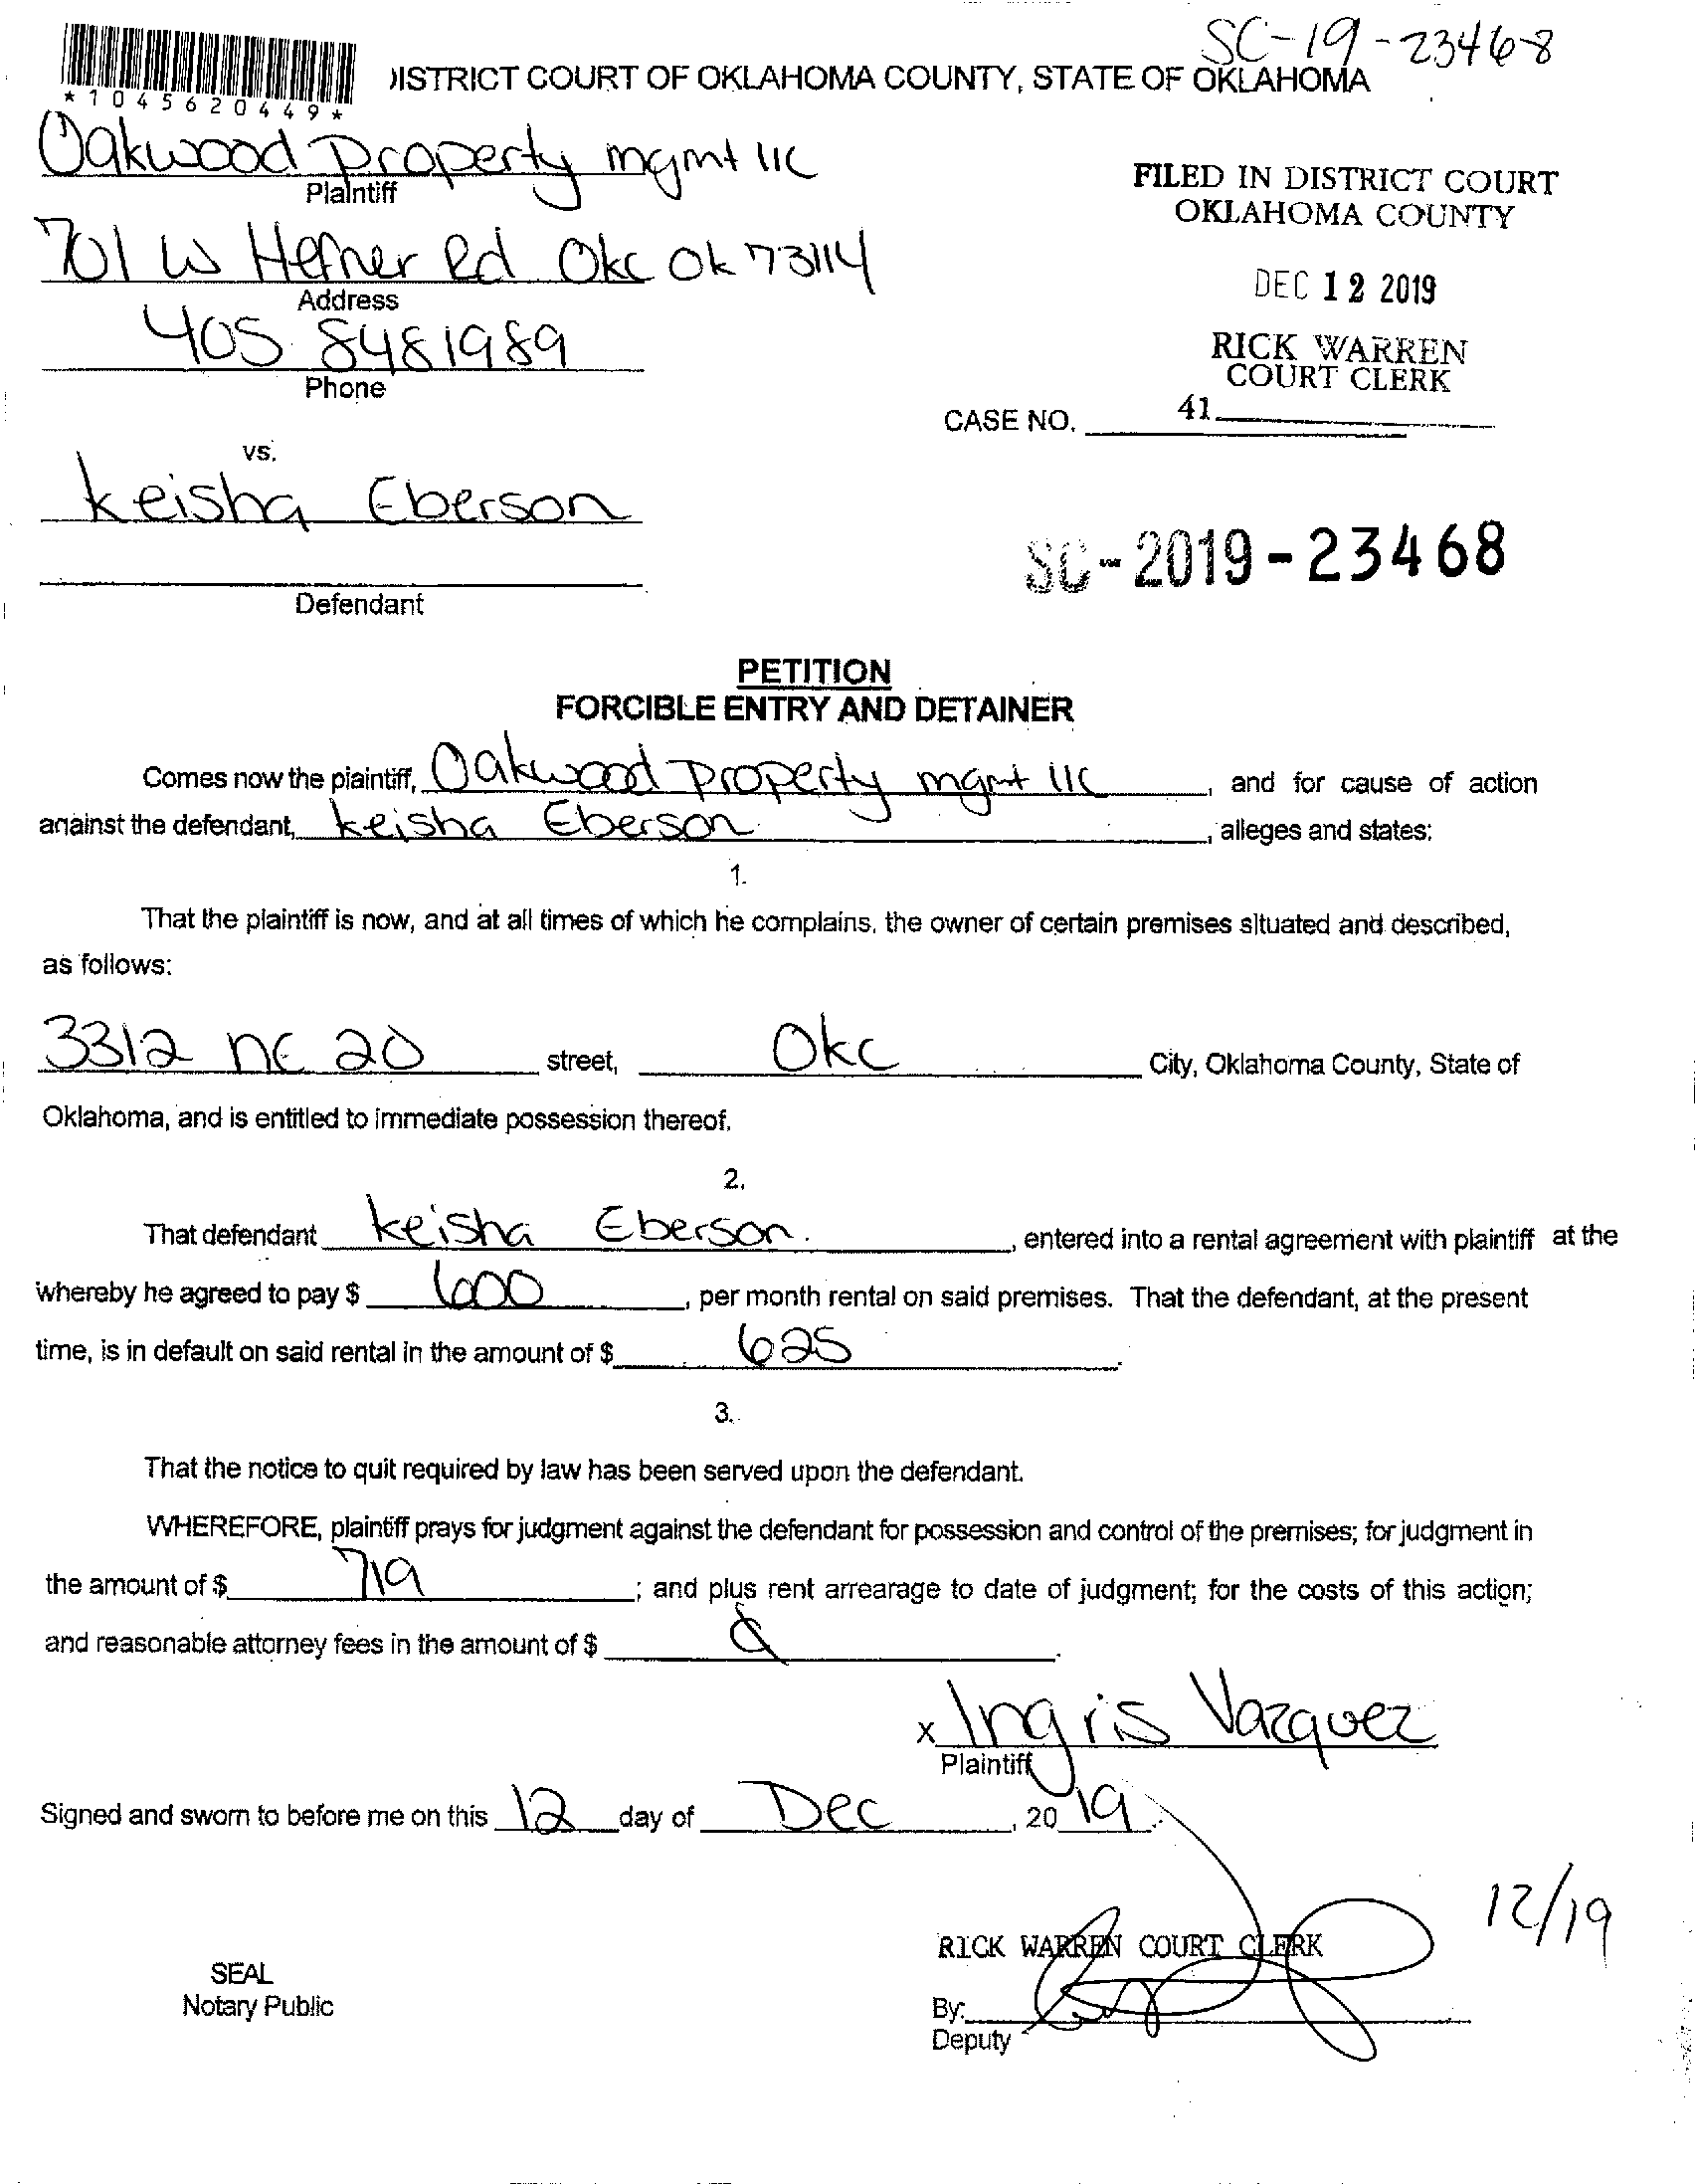 SC-19-23468
*1045620449*
DISTRICT COURT OF OKLAHOMA COUNTY, STATE OF OKLAHOMA
Oakwood Property mgmt llc
Plaintiff
FILED IN DISTRICT COURT
OKLAHOMA COUNTY
701 W Hefner Rd Okc Ok 73114
Address
DEC 12 2019
405 8481989
Phone
RICK WARREN
COURT CLERK
CASE NO. 41
vs.
Keisha Eberson
SC-2019-23468
Defendant
PETITION
FORCIBLE ENTRY AND DETAINER
Comes now the plaintiff, Oakwood Property mgmt llc, and for cause of action
against the defendant, Keisha Eberson, alleges and states:
1.
That the plaintiff is now, and at all times of which he complains, the owner of certain premises situated and described,
as follows:
3312 ne 20 street, Okc City, Oklahoma County, State of
Oklahoma, and is entitled to immediate possession thereof.
2.
That defendant Keisha Eberson, entered into a rental agreement with plaintiff at the
whereby he agreed to pay $ 600, per month rental on said premises. That the defendant, at the present
time, is in default on said rental in the amount of $ 625.
3.
That the notice to quit required by law has been served upon the defendant.
WHEREFORE, plaintiff prays for judgment against the defendant for possession and control of the premises; for judgment in
the amount of $ 719; and plus rent arrearage to date of judgment; for the costs of this action;
and reasonable attorney fees in the amount of $
x Ingris Vazquez
Plaintiff
Signed and sworn to before me on this 12 day of Dec, 2019.
12/19
RICK WARREN COURT CLERK
SEAL
Notary Public
By:
Deputy